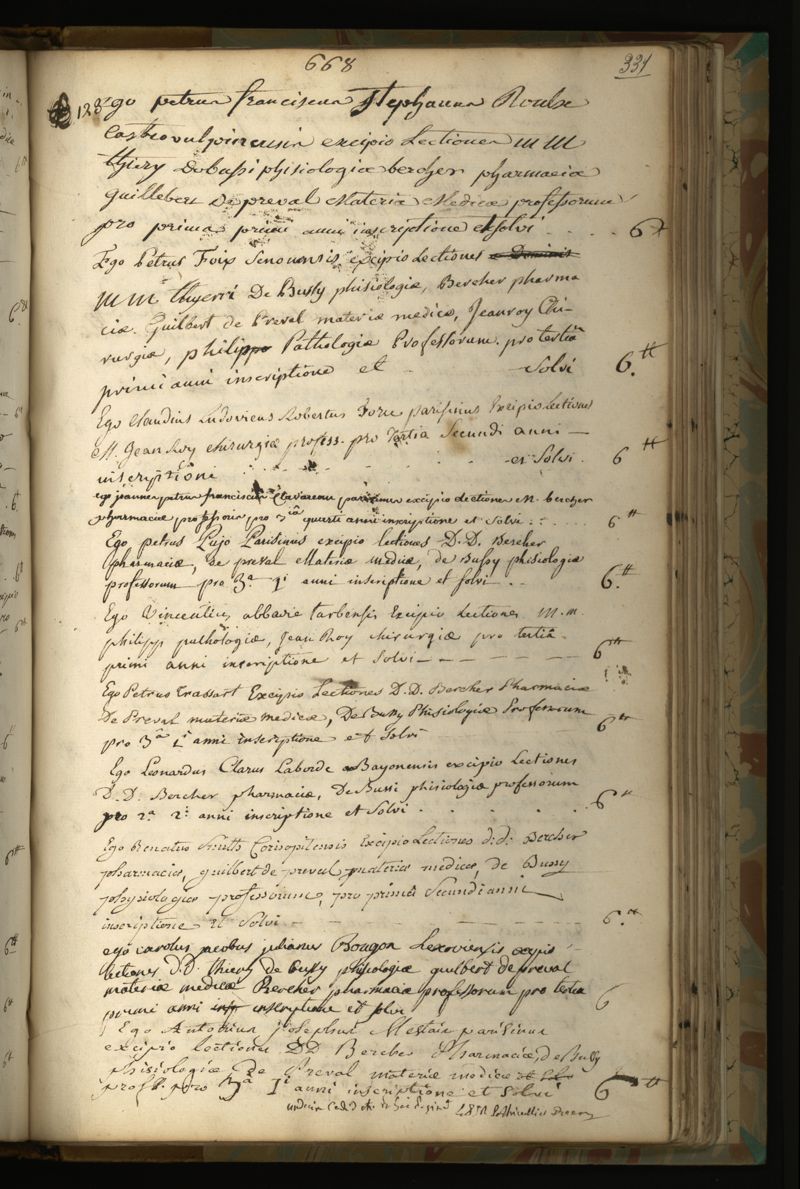 668
331
Ego petrus franciscus Stephanus Roulx
Castrovulpinensis excipio Lectiones MM
thiery Debussi phisiologiæ bercher pharmaciæ
guillebert De preval Materiæ Medicæ professorum
pro prima primi anni inscriptione et solvi . . . . 6tt
Ego Petrus Foix Senonensis excipio Lectiones
MM thyerri De Bussy phisiologiæ, Bercher pharma
ciæ. Guilbert de Preval materiæ medicæ, Jeanroy Chi-
rurgiæ, philip Pathologiæ Professorum. pro tertiâ
primi anni inscriptione et - Solvi 6.tt
Ego Claudius Ludovicus Robertus parisinus Excipio Lectiones
M. Jean Roy chirurgiæ profess. pro tertia Secundi anni —
inscriptioni . . . . . . . - et Solvi . 6 tt
ego joannes petrus franciscus Clavareau parisinus excipio lectiones M. bercher
pharmaciæ professoris pro 3ia quarti anni inscriptione et solvi : : . . . . 6 tt
Ego petrus Pujo Parisinus excipio lectiones D.D. Bercher
pharmaciæ, De preval Materiæ mediæ, de Bussy phisiologiæ
professorum pro 3.a qi anni inscriptione et solvi . . 6.tt
Ego Vincentius abbadie tarbensis Excipio Lectiones M.m.
philipp pathologiæ, Jean Roy chirurgiæ pro tertiâ
primi anni inscriptione et Solvi — — — — — — 6tt
Ego Petrus Trassart Excipio Lectiones D.D. Bercher Pharmaciæ
De Preval materiæ medicæ, De Bussy Phisiologiæ Professorum
pro 3.a 1i anni inscriptione et Solvi 6tt
Ego Leonardus Clarus Laborde Bayonensis excipio Lectiones
D.D. Bercher pharmaciæ, De Bussi phisiologiæ professorum
pro 2a 2i anni inscriptione et Solvi . . . . . . 6 tt
Ego Renatus Corisopitensis Excipio Lectiones d:d: Bercher
pharmaciæ, guilbert de preval materiæ medicæ, de Bussy
physiologiæ professorum, pro primâ Secundi anni
inscriptione Et Solvi — — — — — — — 6.tt
ego carolus jacobus julianus Bougon Lexoviensis excipio
lectiones D.D. thiery de bussy phisiologiæ guilbert de preval
materiæ medicæ Bercher pharmaciæ professorum pro tertia
primi anni inscriptione et solvi 6
Ego Antonius Josephus Mestais parisinus
excipio lectiones DD Bercher Pharmaciæ, de Bussy
phisiologiæ De Preval materiæ medicæ
prof. pro 3a 1i anni inscriptione et solvi 6tt